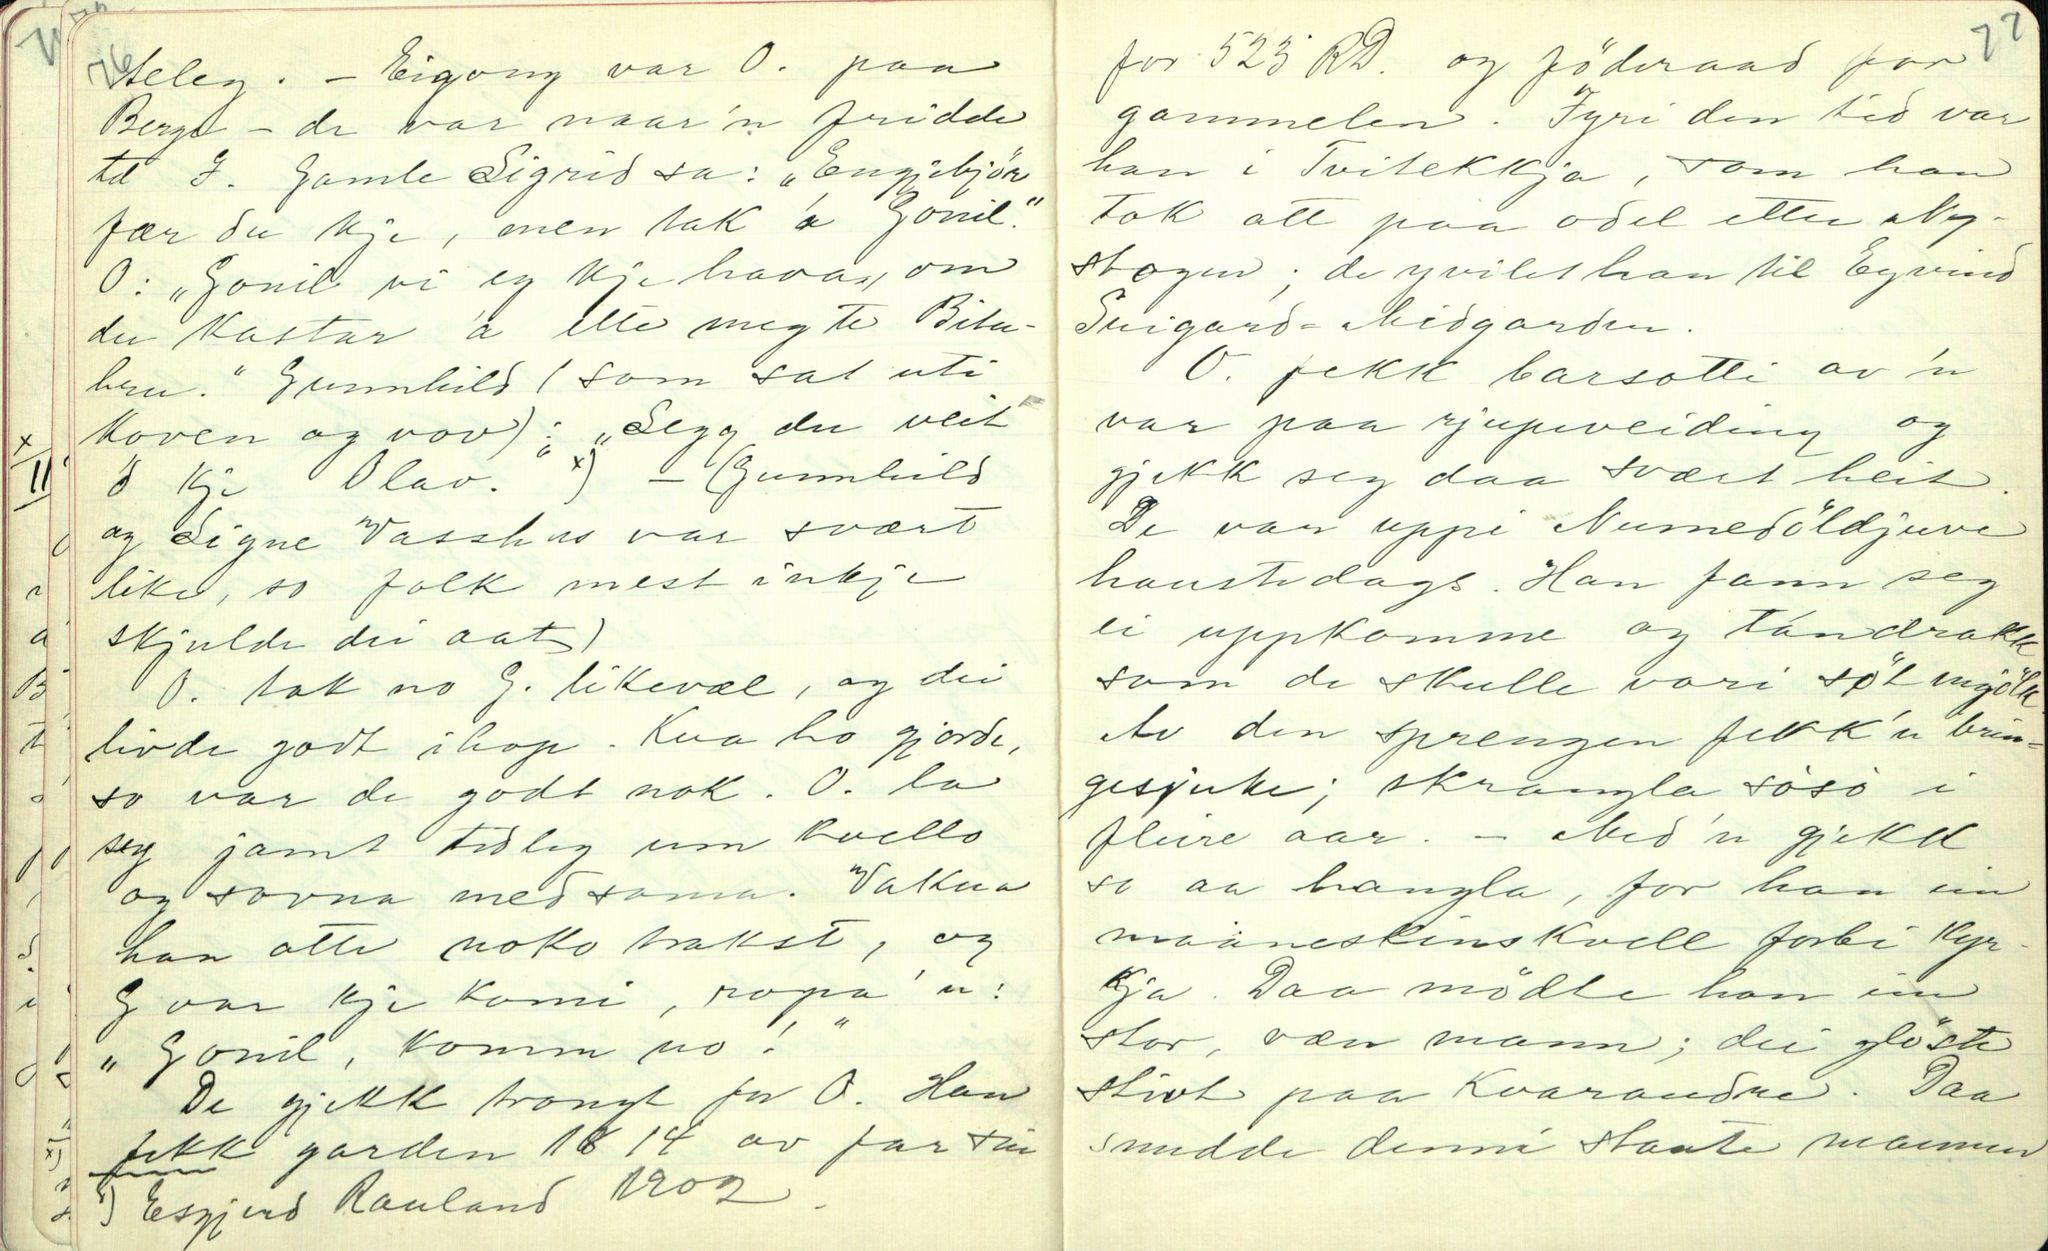 76
teleg. – Eigong var O. paa
Berge – de var naar'n fridde
til I. Gamle Sigrid sa: „Engjebjör
fær du kje, men tak 'a Gonil."
O: „Gonil vi eg kje hava, om
du kastar 'a ette meg te Bitu-
bru." Gunnhild (som sat uti
koven og vov): „Segg du veit
d kje Olav. x) – (Gunnhild
og Signe Vasshus var svært
like, so folk mest inkje
skjulde dei aat)
O. tok no G. likevæl, og dei
livde godt ihop. Kva ho gjorde,
so var de godt nok. O. la
seg jamt tidleg um kvello
og sovna med sama. Vakna
han atte noko trakst, og
G var kje komi, ropa 'n:
„Gonil, komm no!"
De gjekk trongt for O. Han
fekk garden 1814 av far sin
x) Esgjerd Rauland 1902.
77
for 523 RD. og föderaad for
gammelen. Fyri den tid var
han i Tvitekkja, som han
tok att paa odel etter Ny-
stogen; de yvilet han til Eyvind
Suigard-Midgarden.
O. fekk barsotti av 'n
var paa rjupeveiding og
gjekk seg daa svært heit.
De var uppi Numedöldjuve
haustedags. Han fann seg
ei uppkomme og tándrakk
som de skulle vori söt mjölk.
Av den sprengen fekk 'n brin-
gesjuke; skrangla sòsò i
fleire aar. – Med 'n gjekk
so aa hangla, for han ein
maaneskinskvell forbi kyr-
kja. Daa mödte han ein
stor, væn mann; dei glöste
stivt paa kvarandre. Daa
snudde denni staute mannen